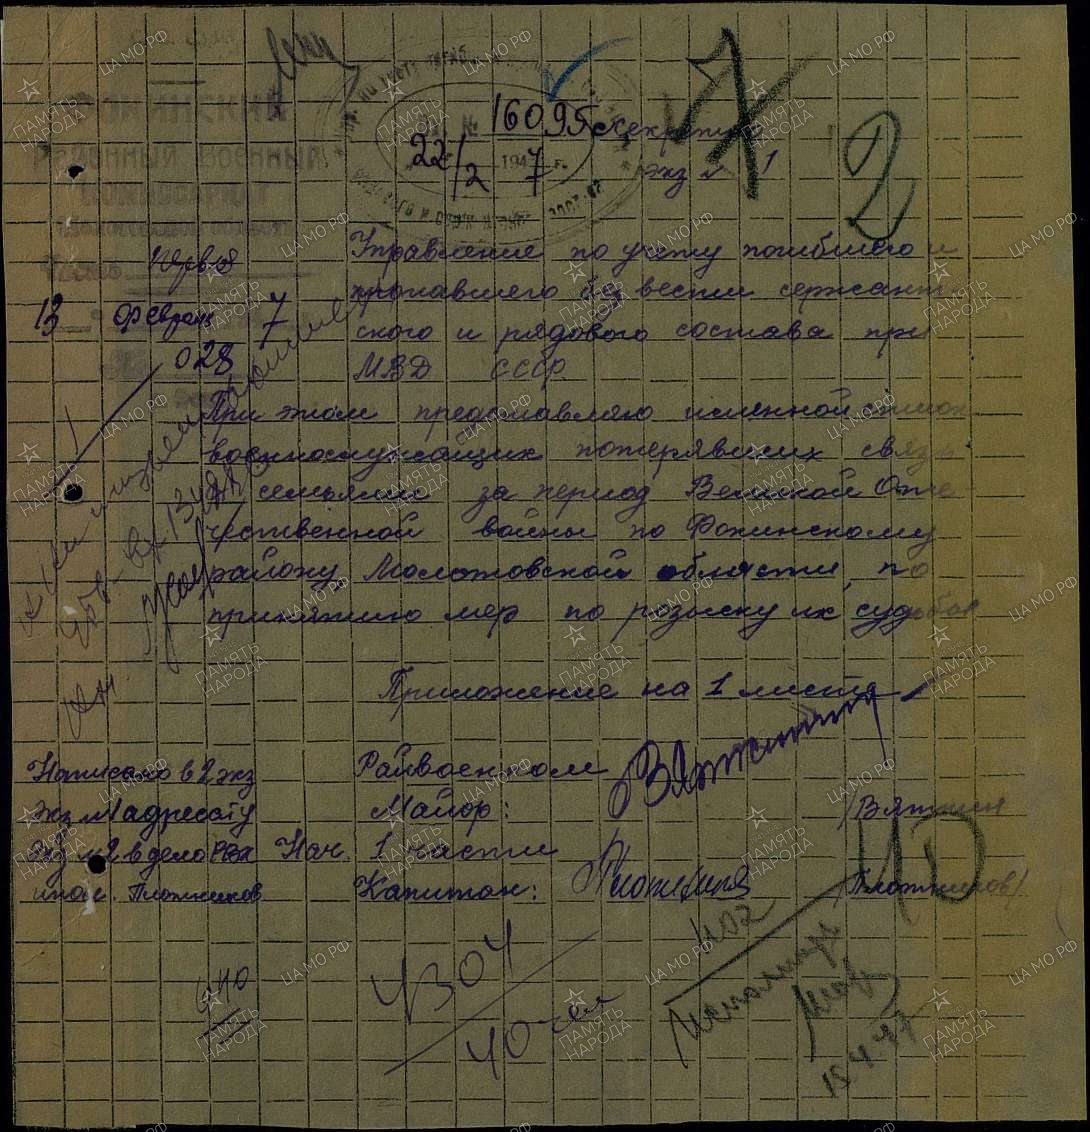 ФОКИНСКИЙ
РАЙОННЫЙ ВОЕННЫЙ
КОМИССАРИАТ
Часть первая
13 февраля 7
028
16095
22/2 1947 г.
Секретно
экз № 1
7
2
Управление по учету погибшего и
пропавшего без вести сержант-
ского и рядового состава при
МВД СССР.
При этом представляю именной список
военнослужащих потерявших связь
с семьями за период Великой Оте-
чественной войны по Фокинскому
району Молотовской области, по
принятию мер по розыску их судьбы
Приложение на 1 листе
Райвоенком
Майор: Вяткин /Вяткин
Нач. 1 части
Капитан: Плотников /Плотников/
Написано в 2 экз
экз №1 адресату
экз №2 в дело РВК
исп. Плотников
40
4304
40 чел
402
ЦАМО РФ
ПАМЯТЬ НАРОДА